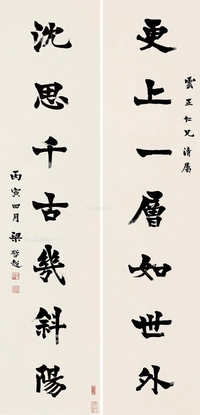 雲正仁兄清屬
更上一層如世外
沈思千古幾斜陽
丙寅四月 梁啓超